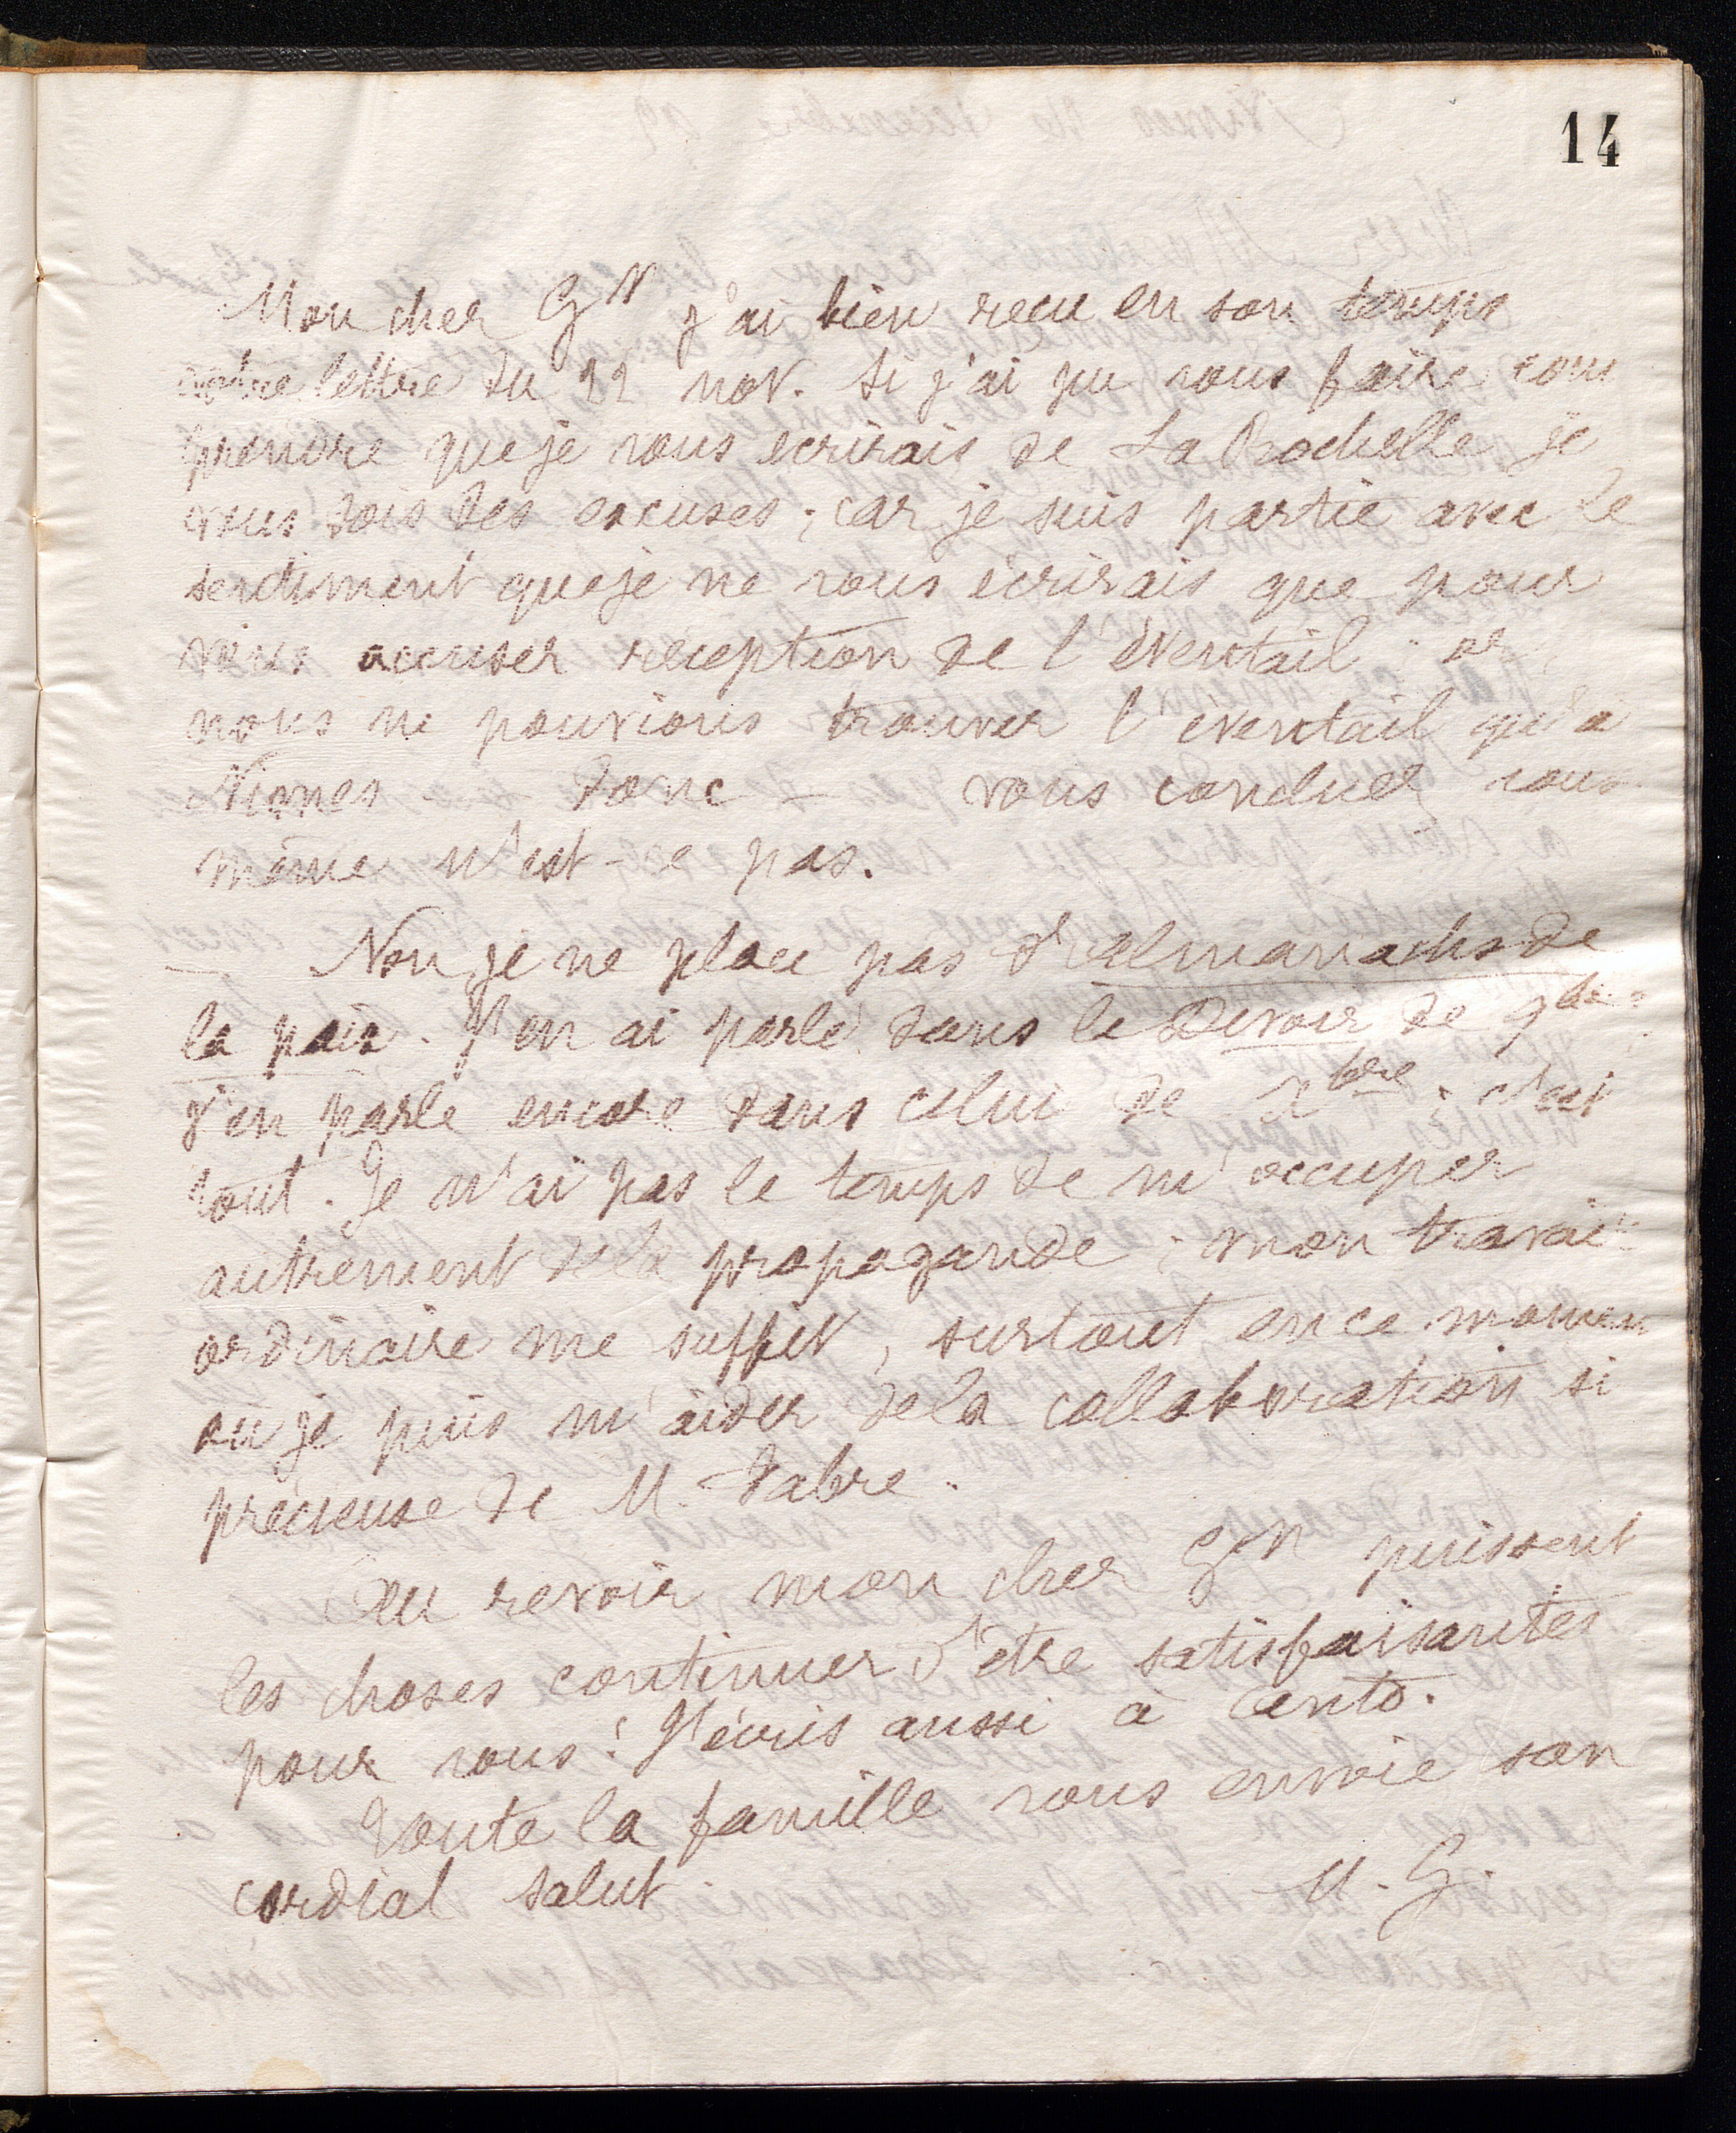 14
Mon cher Gn j'ai bien recu en son temps
votre lettre du 22 nov. Si j'ai pu vous faire com
prendre que je vous ecrirais de La Rochelle je
vous dois des excuses ; car je suis partie avec le
sentiment que je ne vous écrirais que pour
vous accuser réception de l'éventail ; or
nous ne pouvions trouver l'éventail qu'à
Nimes - - Donc - vous concluez vous
même n'est-ce pas.
Non je ne place pas d'almanachs de
la paix. J'en ai parlé dans le Devoir de 9bre
j'en parle encore dans celui de Xbre ; c'est
tout. Je n'ai pas le temps de m'occuper
autrement de la propagande ; mon travail
ordinaire me suffit, surtout en ce moment
où je puis m'aider de la collaboration si
précieuse de M. Fabre.
Au revoir mon cher Gn puissent
les choses continuer d'être satisfaisantes
pour vous ! J'écris aussi à Cento.
Toute la famille vous envoie son
cordial salut.
M. G.